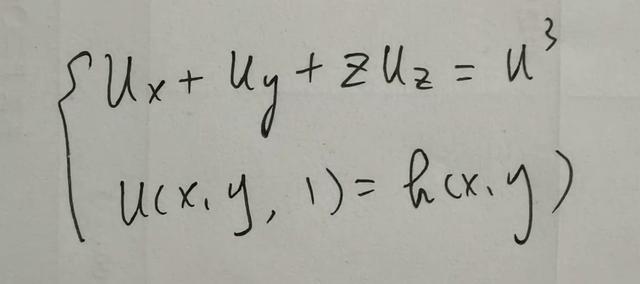 { u_x + u_y + z u_z = u^3
u(x, y, 1) = h(x, y)